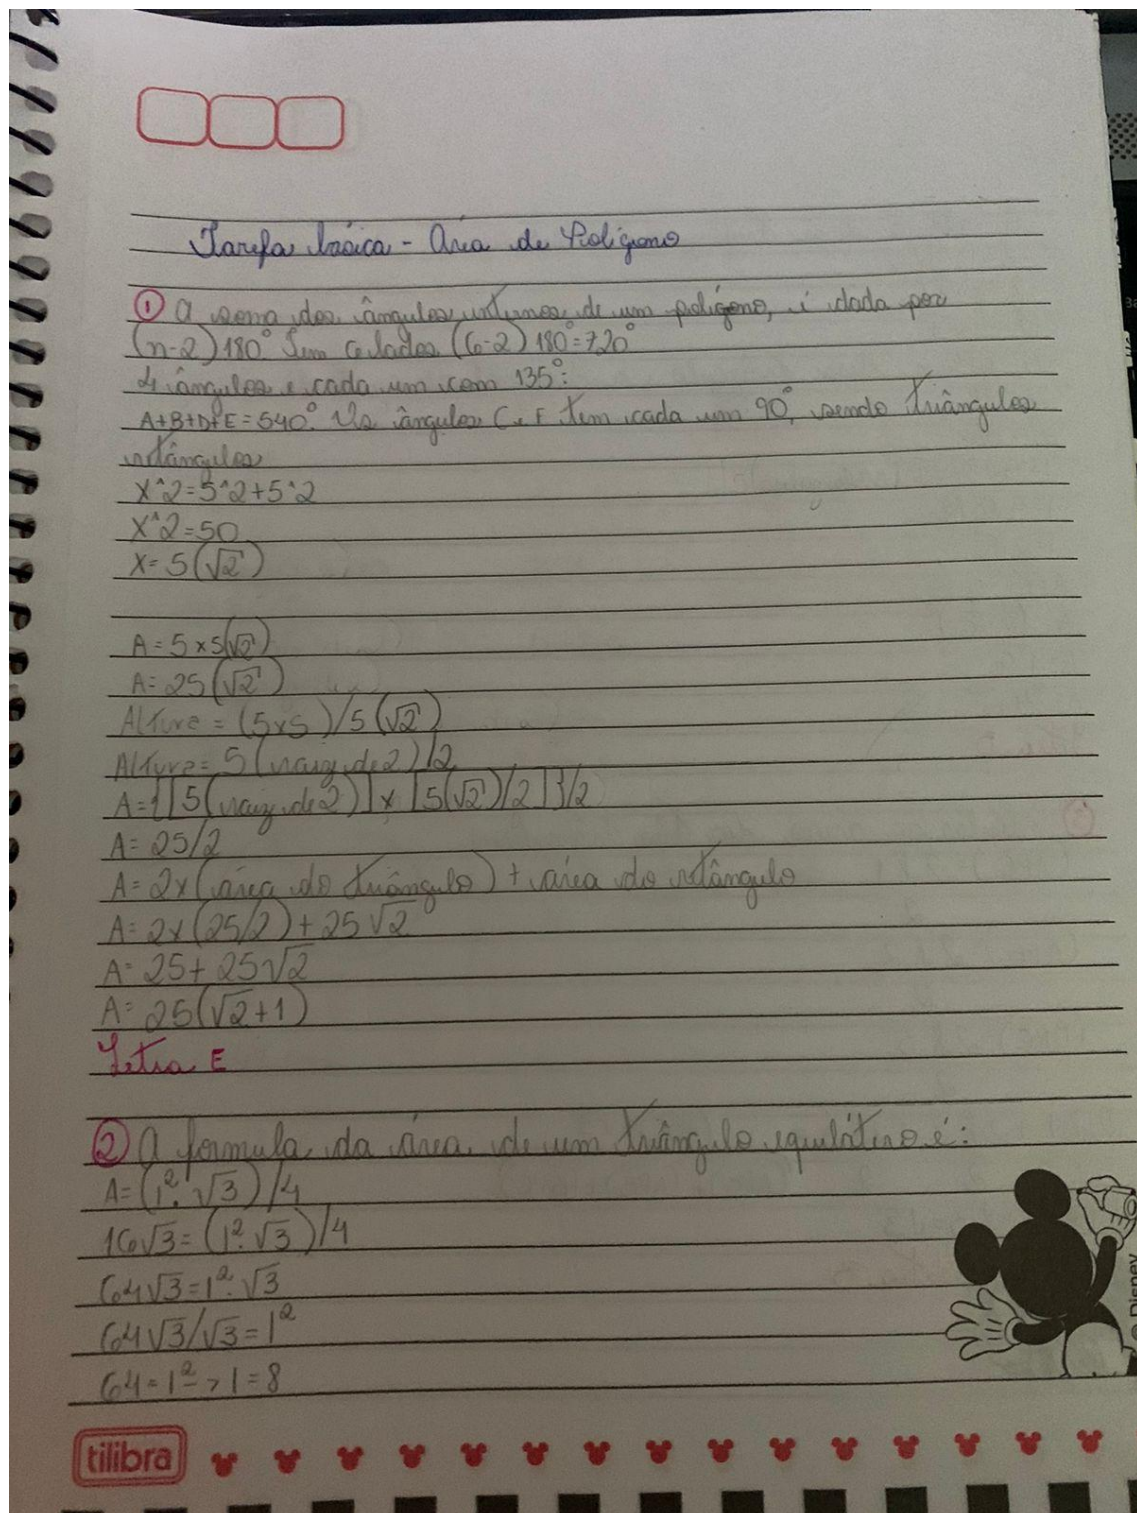 Tarefa básica - Área de Polígono
① A soma dos ângulos internos de um polígono, é dada por
(n-2)180° Tem 6 lados (6-2)180°=720°
4 ângulos e cada um com 135°:
A+B+D+E=540°. Os ângulos C e F tem cada um 90°, sendo triângulos
retângulos
X^2=5^2+5^2
X^2=50
X=5(√2)
A=5x5(√2)
A=25(√2)
Altura=(5x5)/5(√2)
Altura=5(raiz de 2)/2
A={[5(raiz de 2)]x[5(√2)/2]}/2
A=25/2
A=2x(área do triângulo)+área do retângulo
A=2x(25/2)+25√2
A=25+25√2
A=25(√2+1)
Letra E
② A formula da área de um triângulo equilátero é:
A=(l².√3)/4
16√3=(l².√3)/4
64√3=l².√3
64√3/√3=l²
64=l²->l=8
© Disney
tilibra